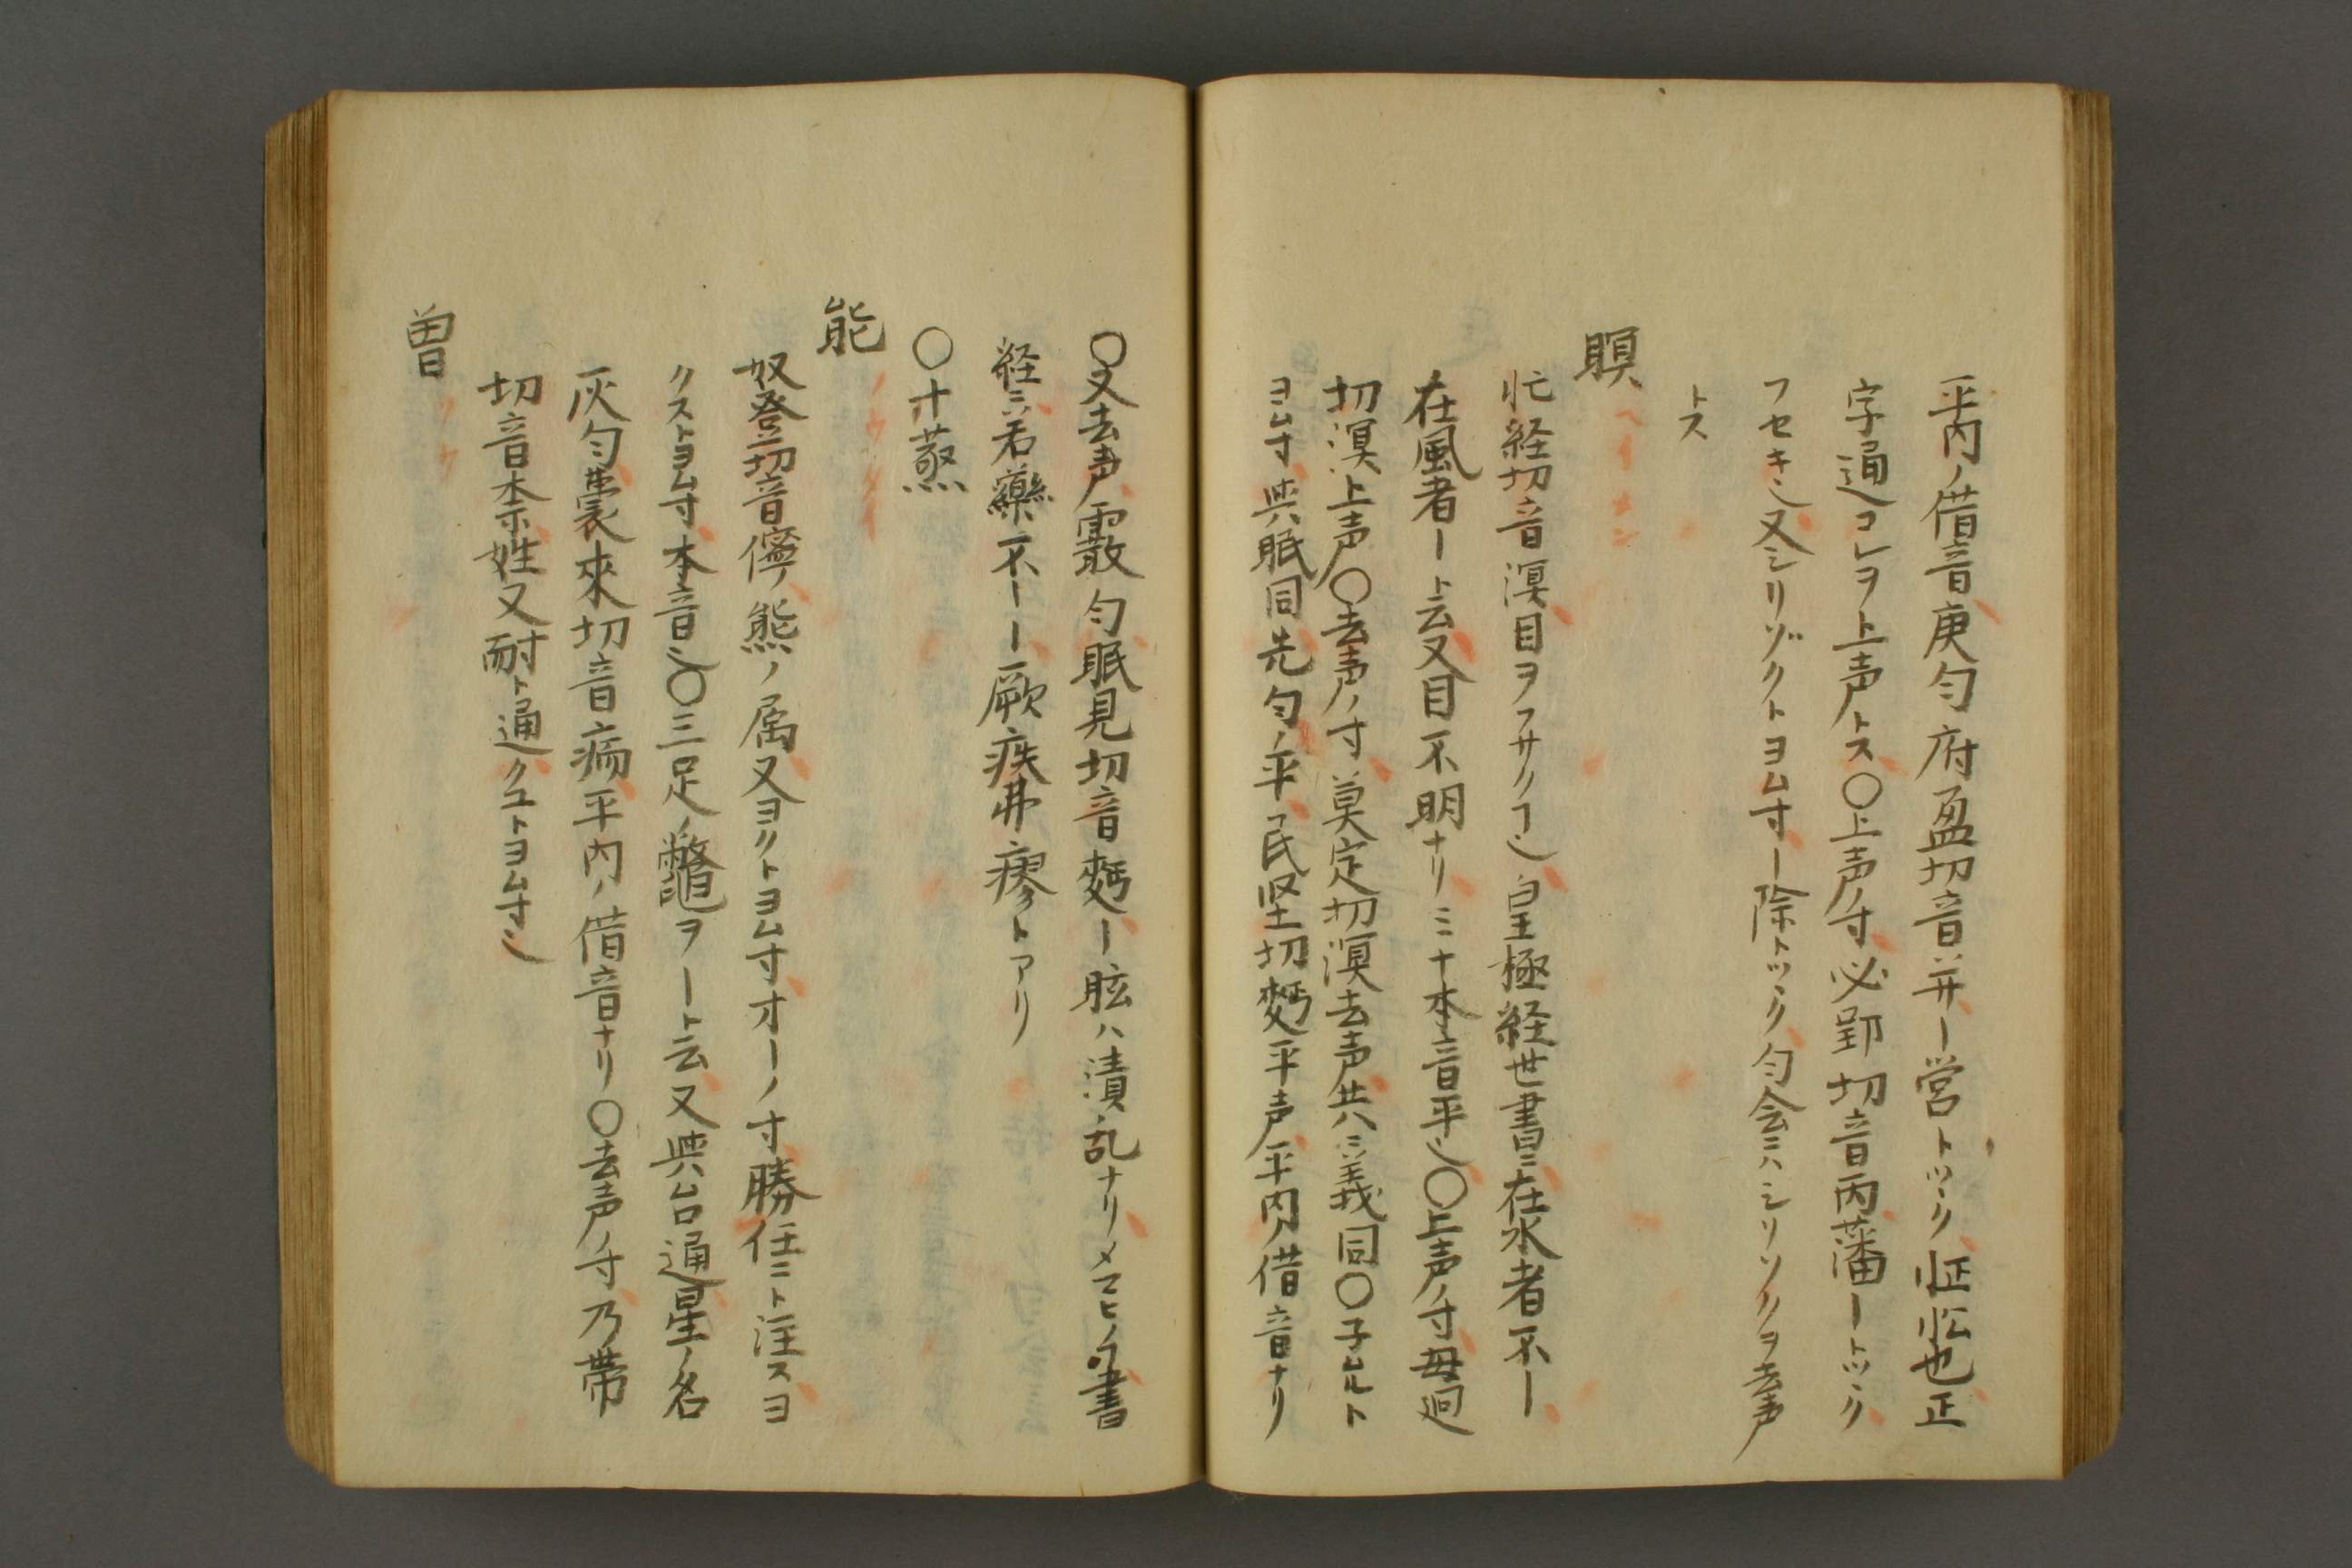 平内ノ借音庚匀府盈切音并ー営トツヽク怔忪也正
字通コレヲト上声トス〇上声ノ寸必郢切音丙藩ートツヽク
フセキ也又シリゾクトヨム寸ー除トツヽク匀会ニハシリソクヲ去声
トス
瞑 ヘイ メン
忙経切音溟目ヲフサクヿ也皇極経世書ニ在水者不ー
在風者ート云又目不明ナリミナ本音平也〇上声ノ寸母迥
切溟上声〇去声ノ寸莫定切溟去声共ニ義同〇子ムルト
ヨム寸與眠同先匀ノ平民堅切麪平声平内ノ借音ナリ
〇又去声霰匀眠見切音麪ー眩ハ潰乱ナリメマヒノヿ書
経ニ若藥不ーー厥疾弗瘳トアリ
〇十蒸
能 ノウ タイ
奴登切音儜熊ノ属又ヨクトヨム寸オーノ寸勝任ニト注スヨ
クストヨム寸本音也〇三足ノ鼈ヲート云又與台通星ノ名
灰匀囊來切音㾃平内ノ借音ナリ〇去声ノ寸乃帶
切音柰姓又耐ト通タユトヨム寸也
曽 ソウ